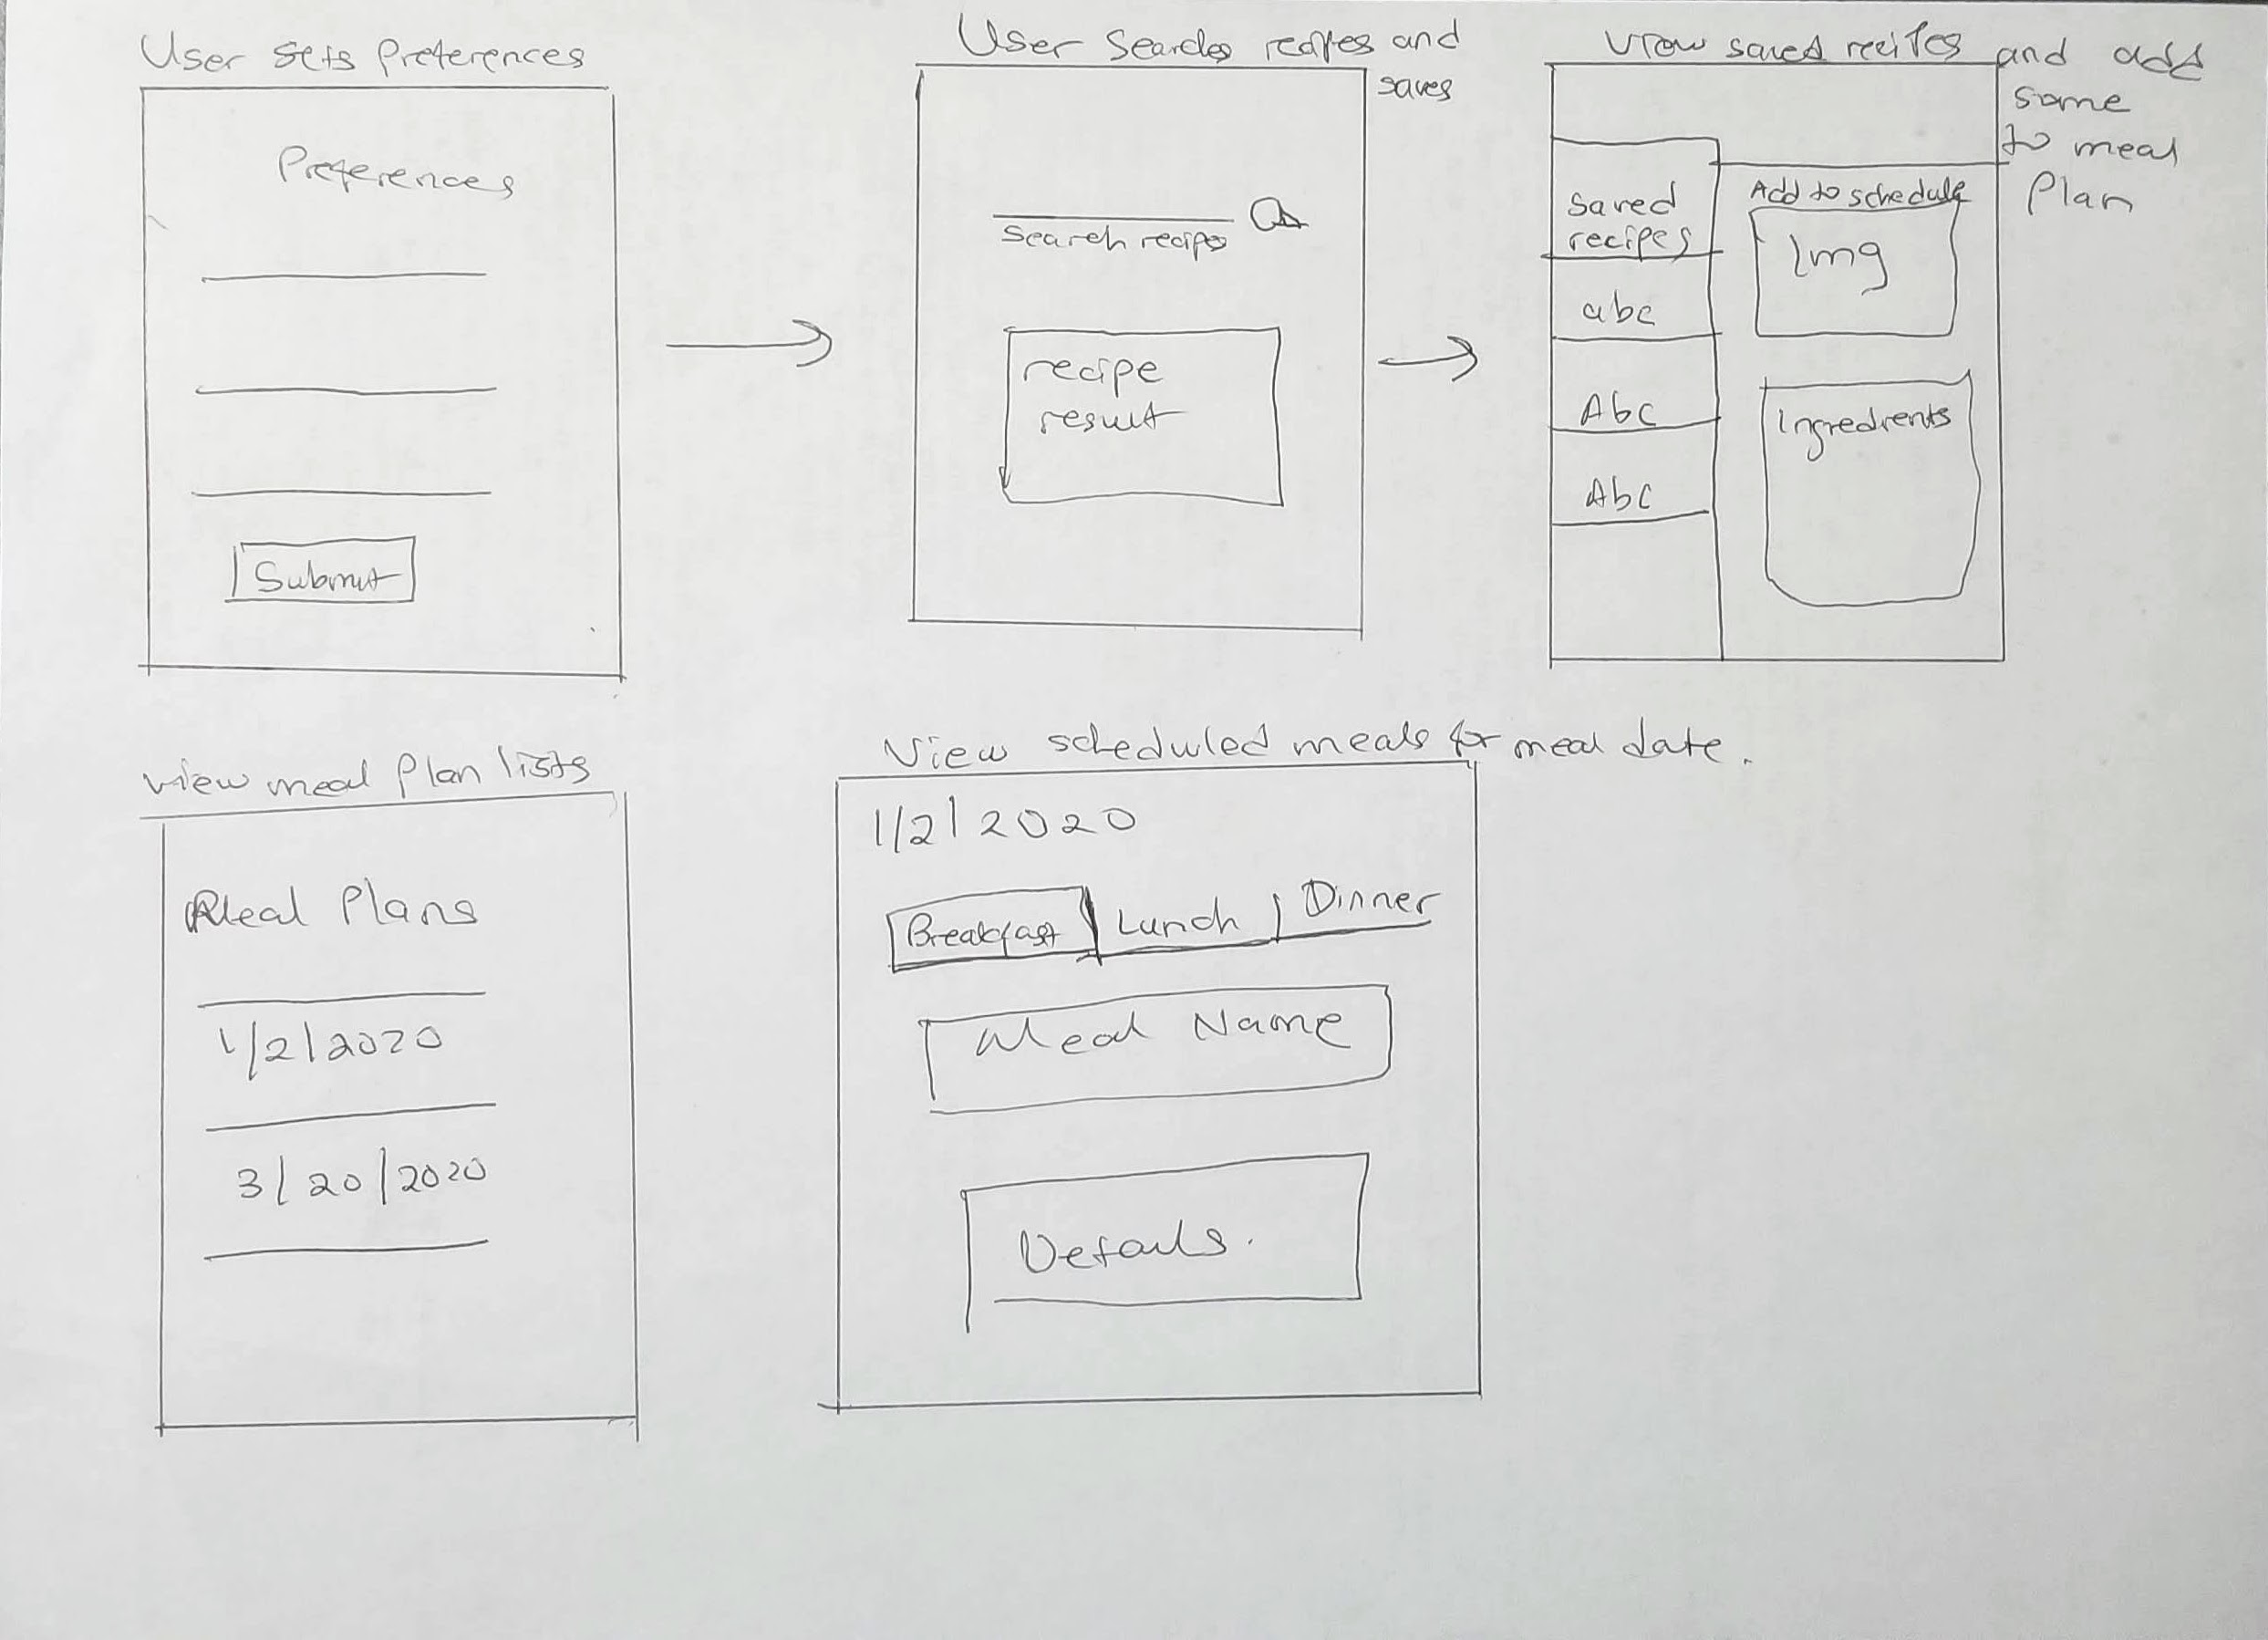 User sets Preferences
Preferences
Submit
User Searches recipes and
saves
Search recipes
recipe
result
View saved recipes and add
some
to meal
Plan
Saved
recipes
abc
Abc
Abc
Add to schedule
Img
Ingredients
view meal Plan lists
Meal Plans
1/2/2020
3/20/2020
View scheduled meals for meal date.
1/2/2020
Breakfast Lunch Dinner
Meal Name
Details.